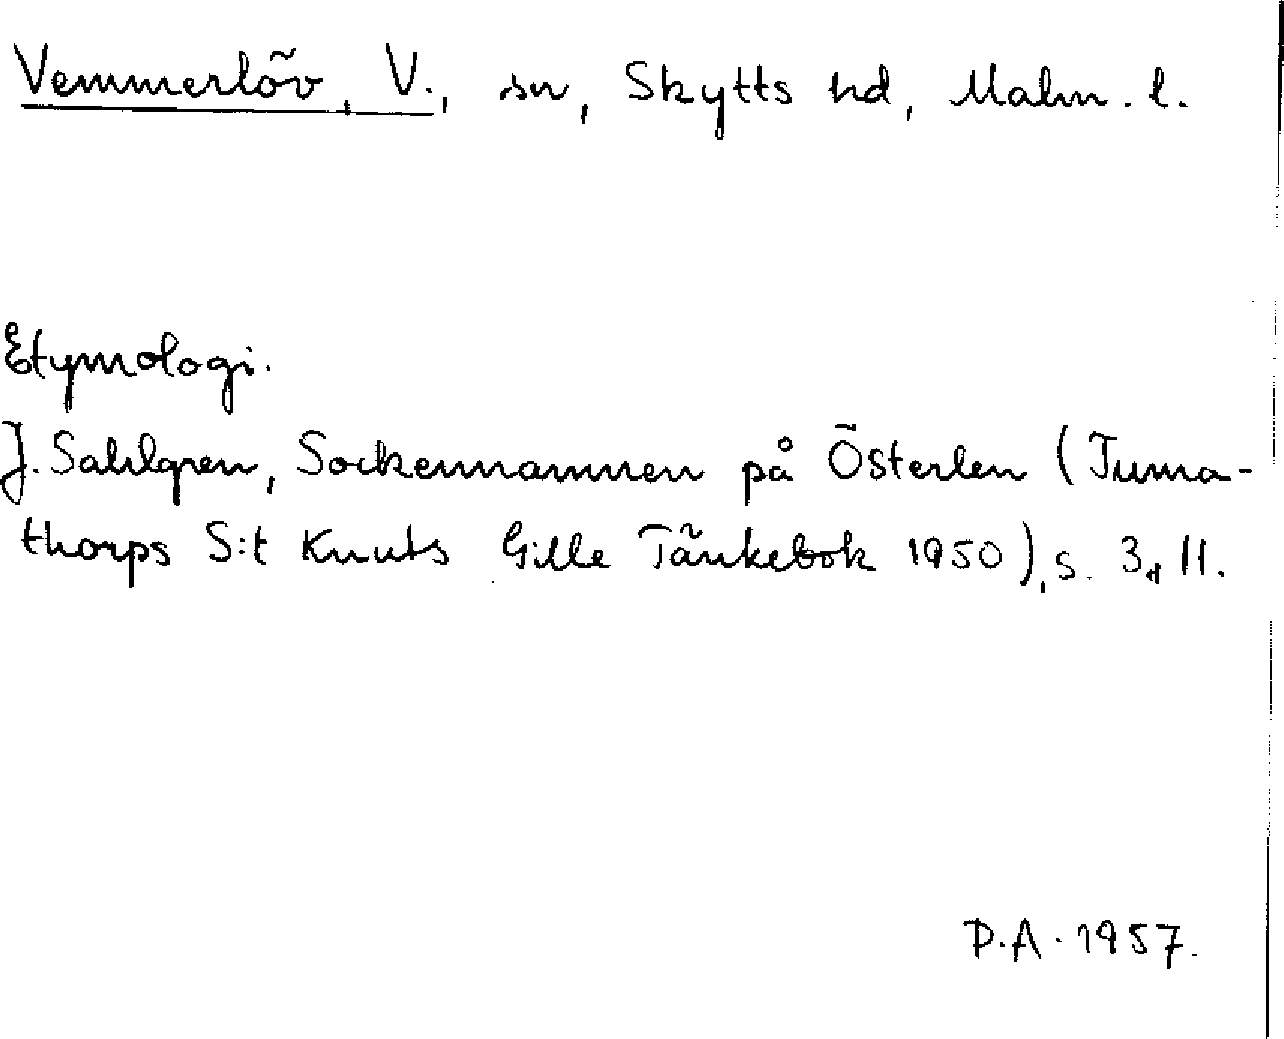 Vemmerlöv, V., sn, Skytts hd, Malm. l.
Etymologi.
J. Sahlgren, Sockennamnen på Österlen (Tuma-
thorps S:t Knuts Gille Tänkebok 1950), s. 3, 11.
D.A. 1957.